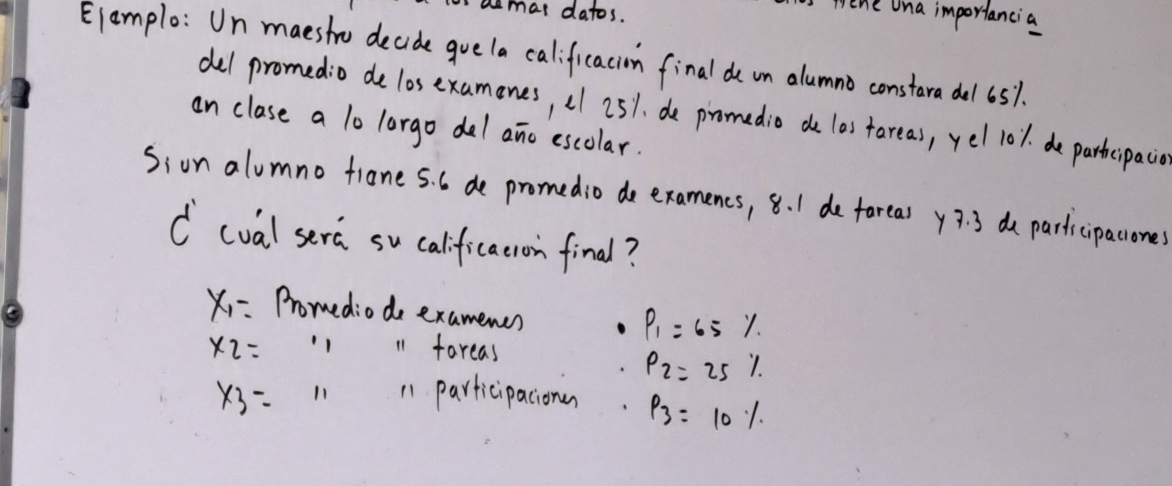 demás datos. tiene una importancia
Ejemplo: Un maestro decide que la calificación final de un alumno constara del 65%.
del promedio de los examenes, el 25%. de promedio de las tareas, y el 10%. de participacion
en clase a lo largo del año escolar.
Si un alumno tiene 5.6 de promedio de examenes, 8.1 de tareas y 7.3 de participaciones
¿ cuál será su calificación final?
X1= Promedio de examenes • P1 = 65 %.
X2= " " tareas . P2= 25 %.
X3= " " participaciones . P3= 10 %.